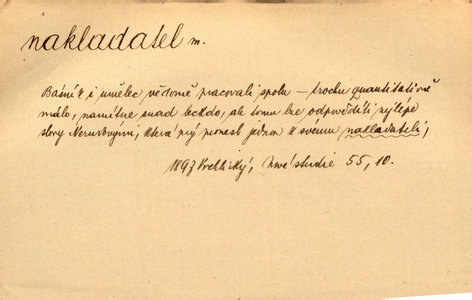 nakladatel m.
Básník i umělec vědomě pracovali spolu — trochu quantitativně
málo, namítne snad leckdo, ale tomu lze odpověděti nejlépe
slovy Nerudovými, která prý pronesl jednou k svému nakladateli,
1897 Vrchlický, Nové studie 55, 10.